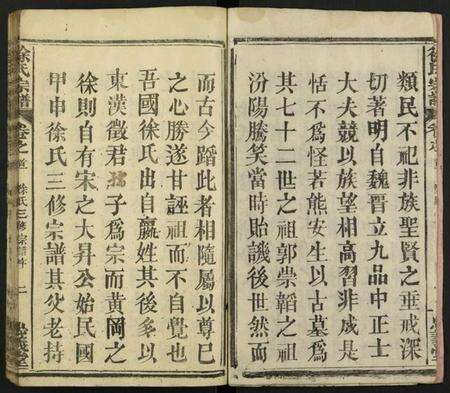 徐氏宗譜
類民不祀非族聖賢之垂戒深
切著明自魏晋立九品中正士
大夫競以族望相高習非成是
恬不爲怪若熊安生以古墓爲
其七十二世之祖郭崇韜之祖
汾陽騰笑當時貽譏後世然而
而古今蹈此者相隨屬以尊已
之心勝遂甘誣祖而不自覺也
吾國徐氏出自嬴姓其後多以
東漢徵君孺子爲宗而黃岡之
徐則自有宋之大昇公始民國
甲申徐氏三修宗譜其父老持
徐氏宗譜 卷之 徐氏三修宗譜 一